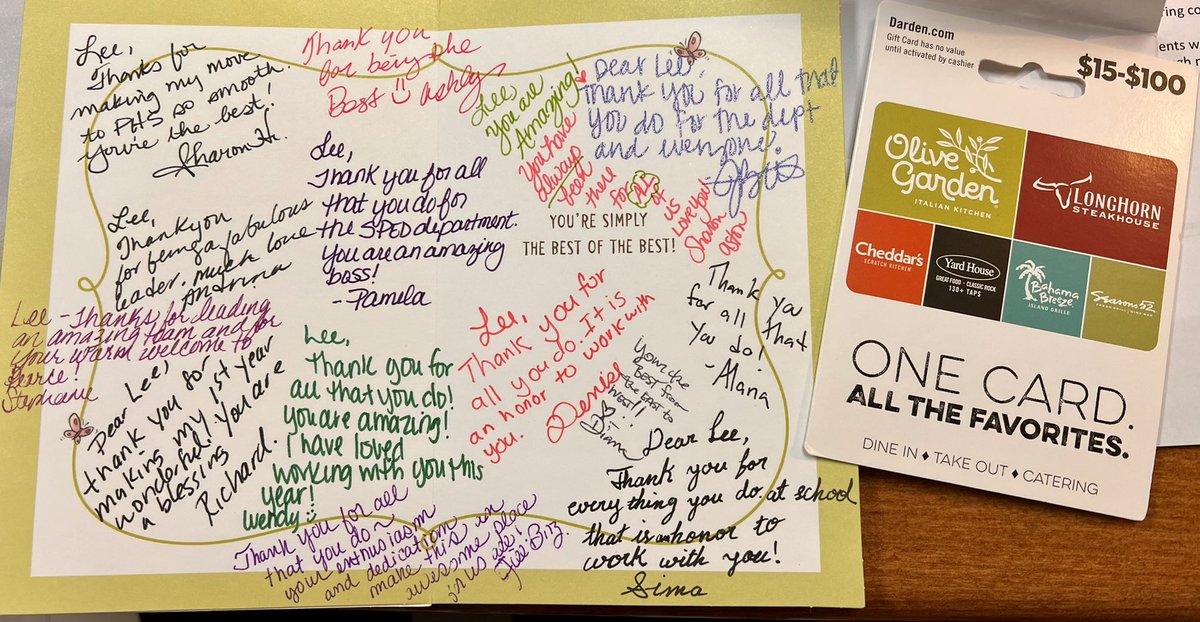 Lee,
Thanks for
making my move
to PHS so smooth.
You're the best!
Sharon H.
Thank you
for being the
Best Ashley
Lee,
you are
Amazing!
You have
always
been
there
for all of
us
Love you
Sharon
Dear Lee,
thank you for all that
you do for the dept
and everyone!
Lee,
Thank you for all
that you do for
the SPED department.
You are an amazing
boss!
-Pamela
YOU'RE SIMPLY
THE BEST OF THE BEST!
Lee,
Thank you
for being a fabulous
leader. Much love
Lee - Thanks for leading
an amazing team and for
your warm welcome to
Pearce!
Stephanie
Dear Lee,
thank you for
making my 1st year
wonderful! You are
a blessing
Richard.
Lee,
Thank you for
all that you do!
you are amazing!
I have loved
working with you this
year!
wendy
Lee,
Thank you for
all you do. It is
an honor to work with
you. Denise
Thank you
for all that
you do!
-Alana
You're the
BEST from
the EAST to
WEST!!
Diane
Dear Lee,
Thank you for
everything you do at school
that is an honor to
work with you!
Sima
Thank you for all
that you do -
your enthusiasm
and dedication
make this an
awesome place
Darden.com
Gift Card has no value
until activated by cashier
$15-$100
Olive
Garden
ITALIAN KITCHEN
LONGHORN
STEAKHOUSE
Cheddar's
SCRATCH KITCHEN
Yard House
GREAT FOOD · CLASSIC ROCK
130+ TAPS
Bahama
Breeze
ISLAND GRILLE
Seasons 52
ONE CARD.
ALL THE FAVORITES.
DINE IN ♦ TAKE OUT ♦ CATERING